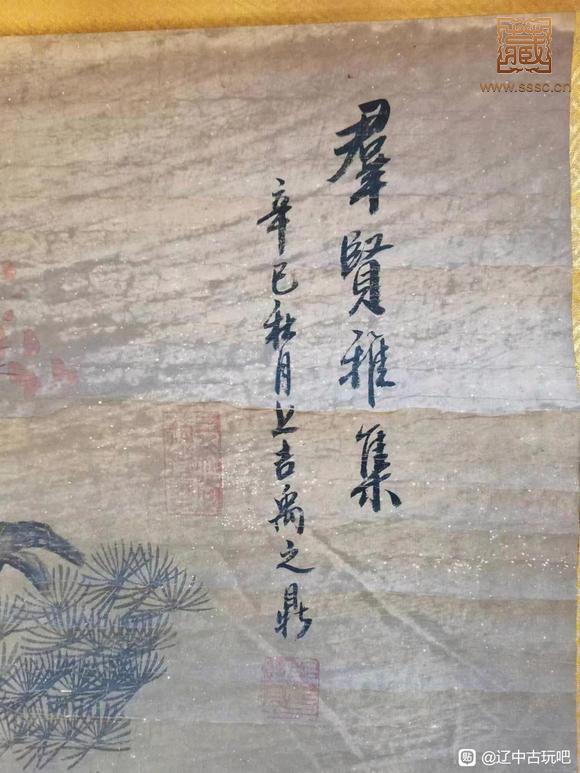 羣賢雅集
辛巳秋月上吉禹之鼎
藏
www.sssc.cn
貼 @辽中古玩吧